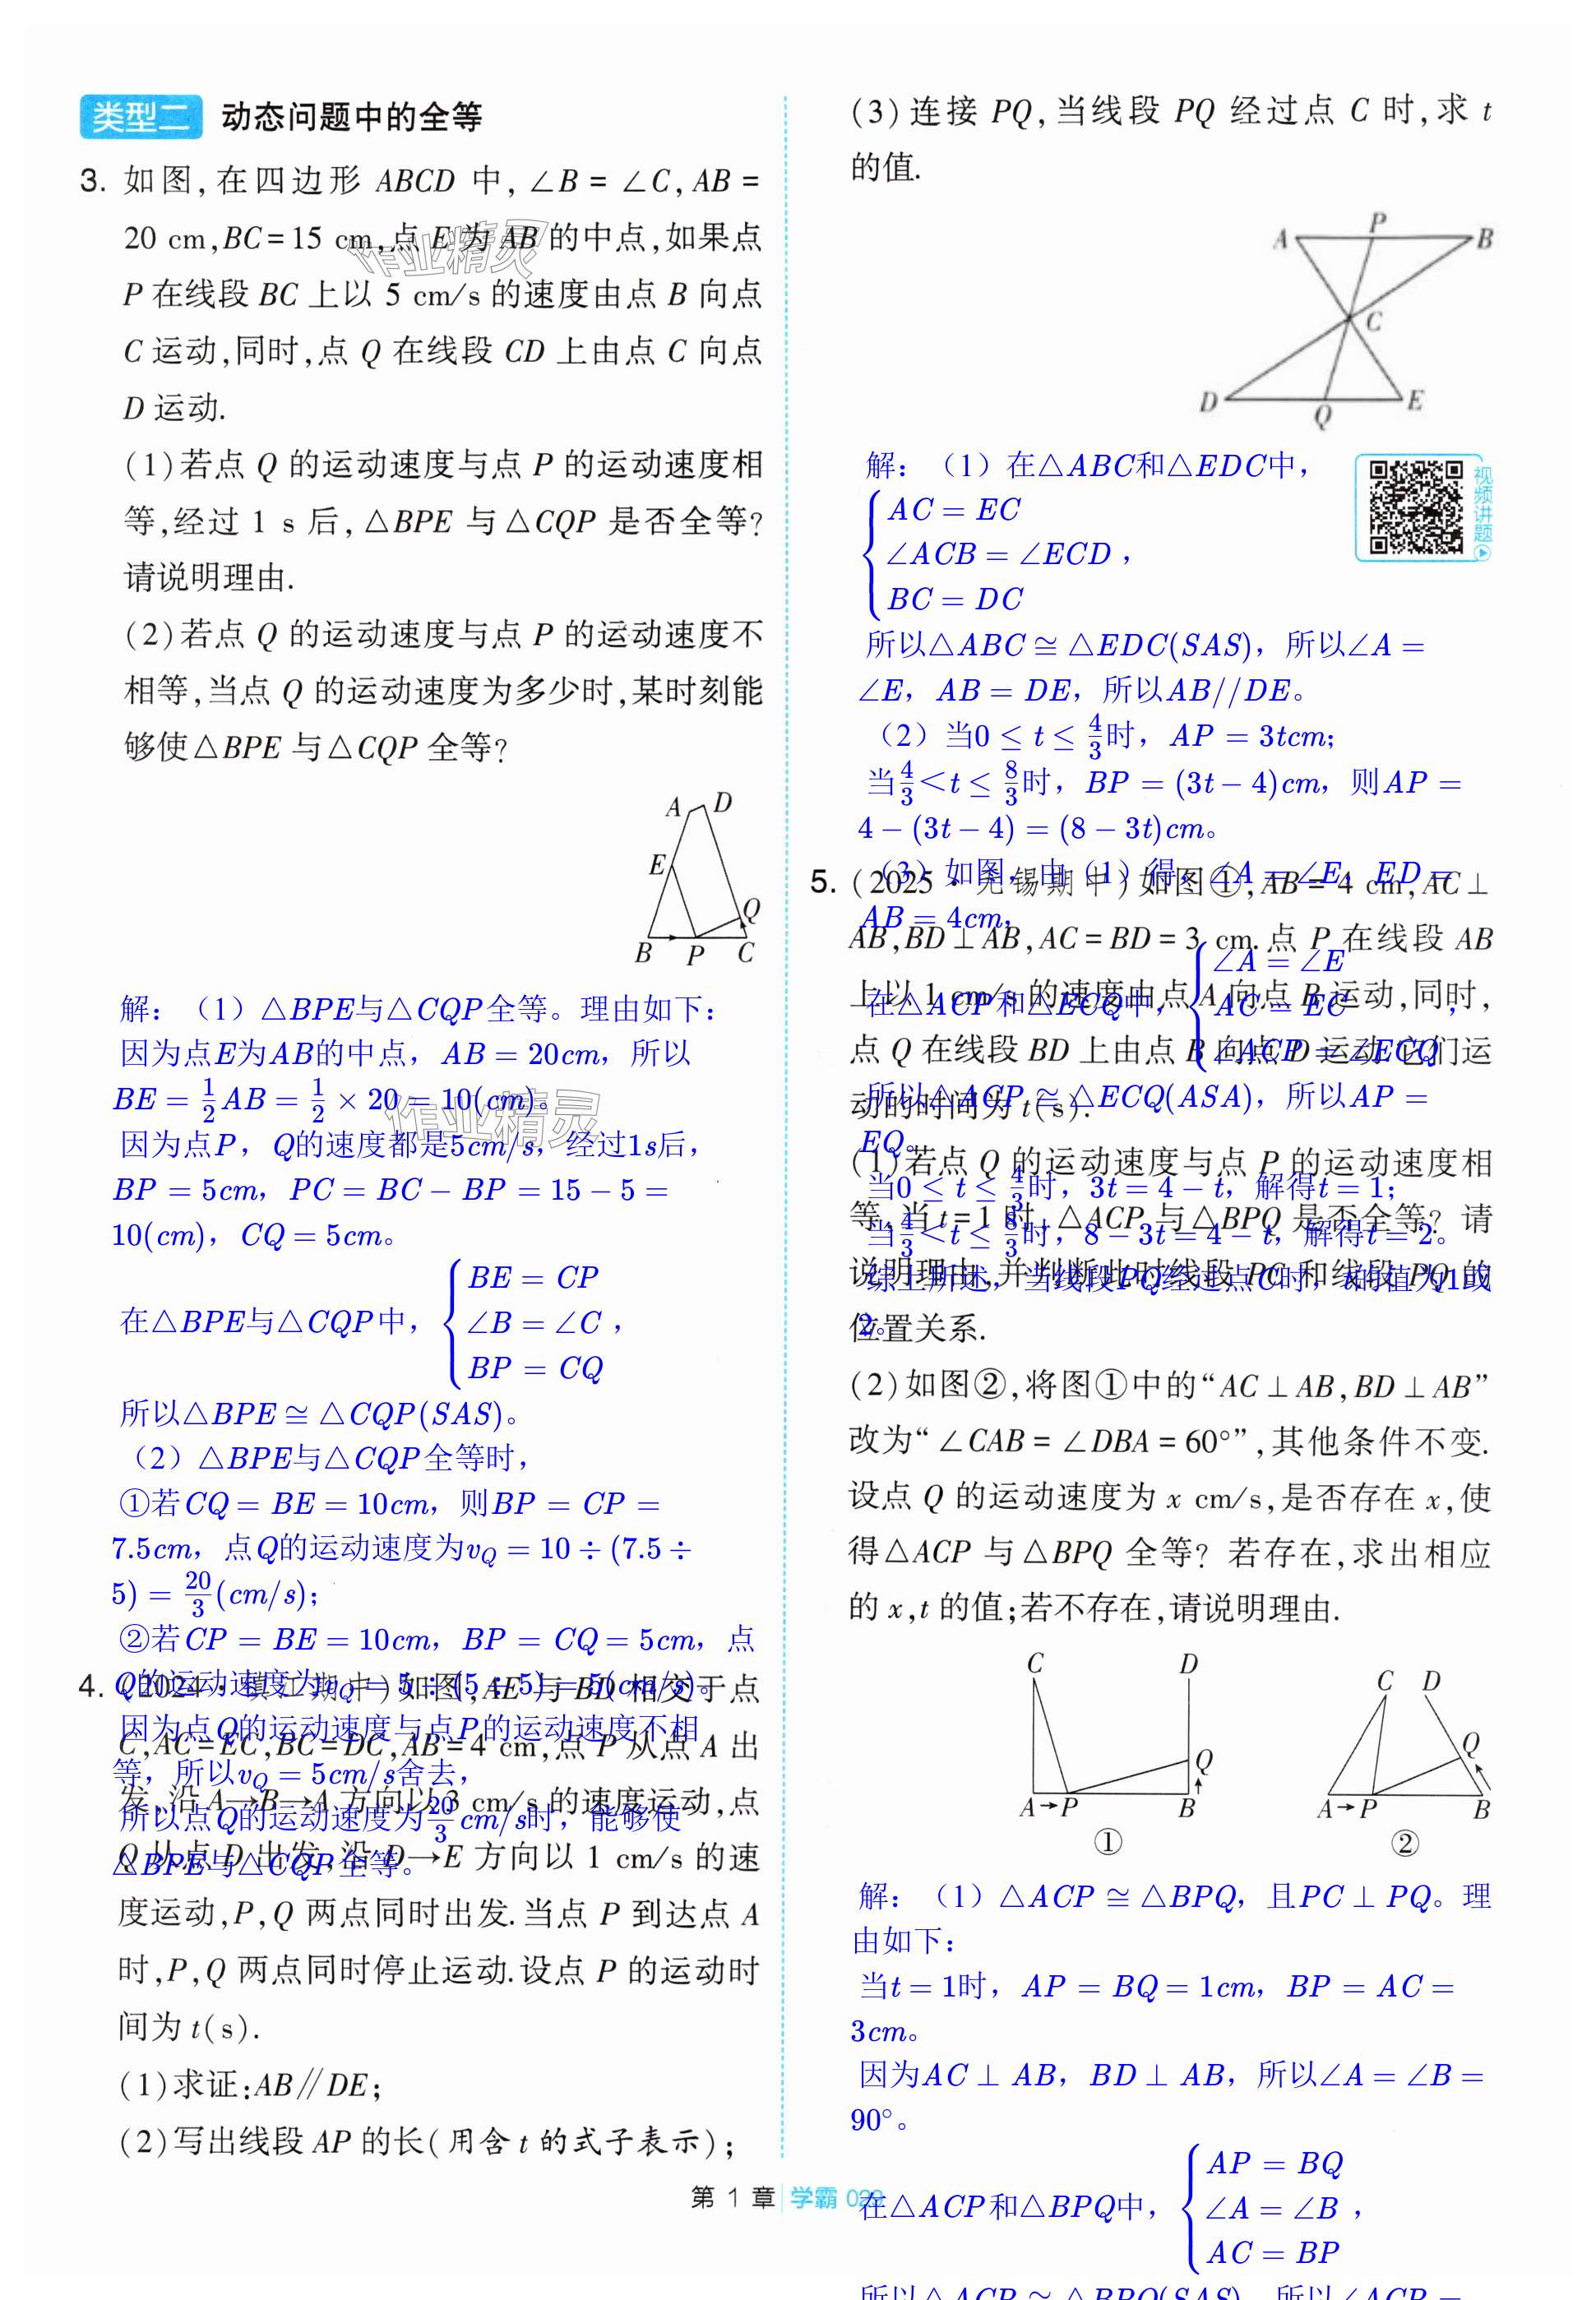 类型二 动态问题中的全等
3. 如图,在四边形 ABCD 中,∠B = ∠C,AB =
20 cm,BC=15 cm,点 E 为 AB 的中点,如果点
P 在线段 BC 上以 5 cm/s 的速度由点 B 向点
C 运动,同时,点 Q 在线段 CD 上由点 C 向点
D 运动.
(1)若点 Q 的运动速度与点 P 的运动速度相
等,经过 1 s 后,△BPE 与△CQP 是否全等?
请说明理由.
(2)若点 Q 的运动速度与点 P 的运动速度不
相等,当点 Q 的运动速度为多少时,某时刻能
够使△BPE 与△CQP 全等?
A D
E
Q
B P C
解:(1)△BPE与△CQP全等。理由如下:
因为点E为AB的中点,AB = 20cm,所以
BE = 1/2 AB = 1/2 × 20 = 10(cm)。
因为点P,Q的速度都是5cm/s,经过1s后,
BP = 5cm,PC = BC − BP = 15 − 5 =
10(cm),CQ = 5cm。
在△BPE与△CQP中,{BE = CP
∠B = ∠C,
BP = CQ
所以△BPE ≅ △CQP(SAS)。
(2)△BPE与△CQP全等时,
①若CQ = BE = 10cm,则BP = CP =
7.5cm,点Q的运动速度为vQ = 10 ÷ (7.5 ÷
5) = 20/3 (cm/s);
②若CP = BE = 10cm,BP = CQ = 5cm,点
Q的运动速度为vQ = 5 ÷ (5 ÷ 5) = 5(cm/s)。
因为点Q的运动速度与点P的运动速度不相
等,所以vQ = 5cm/s舍去,
所以点Q的运动速度为20/3 cm/s时,能够使
△BPE与△CQP全等。
4. (2024·镇江期中)如图,AE 与 BD 相交于点
C,AC=EC,BC=DC,AB=4 cm,点 P 从点 A 出
发,沿 A→B→A 方向以 3 cm/s 的速度运动,点
Q 从点 D 出发,沿 D→E 方向以 1 cm/s 的速
度运动,P,Q 两点同时出发.当点 P 到达点 A
时,P,Q 两点同时停止运动.设点 P 的运动时
间为 t(s).
(1)求证:AB∥DE;
(2)写出线段 AP 的长(用含 t 的式子表示);
(3)连接 PQ,当线段 PQ 经过点 C 时,求 t
的值.
A P B
C
D Q E
视频讲题
解:(1)在△ABC和△EDC中,
{AC = EC
∠ACB = ∠ECD,
BC = DC
所以△ABC ≅ △EDC(SAS),所以∠A =
∠E,AB = DE,所以AB//DE。
(2)当0 ≤ t ≤ 4/3时,AP = 3tcm;
当4/3<t ≤ 8/3时,BP = (3t − 4)cm,则AP =
4 − (3t − 4) = (8 − 3t)cm。
(3)如图,由(1)得,∠A = ∠E,ED =
AB = 4cm,
在△ACP和△ECQ中,{∠A = ∠E
AC = EC,
∠ACP = ∠ECQ
所以△ACP ≅ △ECQ(ASA),所以AP =
EQ。
当0 ≤ t ≤ 4/3时,3t = 4 − t,解得t = 1;
当4/3<t ≤ 8/3时,8 − 3t = 4 − t,解得t = 2。
综上所述,当线段PQ经过点C时,t的值为1或
2。
5. (2025·无锡期中)如图①,AB = 4 cm,AC⊥
AB,BD⊥AB,AC=BD=3 cm.点 P 在线段 AB
上以 1 cm/s 的速度由点 A 向点 B 运动,同时,
点 Q 在线段 BD 上由点 B 向点 D 运动.它们运
动的时间为 t(s).
(1)若点 Q 的运动速度与点 P 的运动速度相
等,当 t=1 时,△ACP 与△BPQ 是否全等?请
说明理由,并判断此时线段 PC 和线段 PQ 的
位置关系.
(2)如图②,将图①中的“AC⊥AB,BD⊥AB”
改为“∠CAB=∠DBA=60°”,其他条件不变.
设点 Q 的运动速度为 x cm/s,是否存在 x,使
得△ACP 与△BPQ 全等?若存在,求出相应
的 x,t 的值;若不存在,请说明理由.
C D
Q
A→P B
①
C D
Q
A→P B
②
解:(1)△ACP ≅ △BPQ,且PC ⊥ PQ。理
由如下:
当t = 1时,AP = BQ = 1cm,BP = AC =
3cm。
因为AC ⊥ AB,BD ⊥ AB,所以∠A = ∠B =
90°。
在△ACP和△BPQ中,{AP = BQ
∠A = ∠B,
AC = BP
所以△ACP ≅ △BPQ(SAS),所以∠ACP =
第 1 章 学霸 029
作业精灵
作业精灵